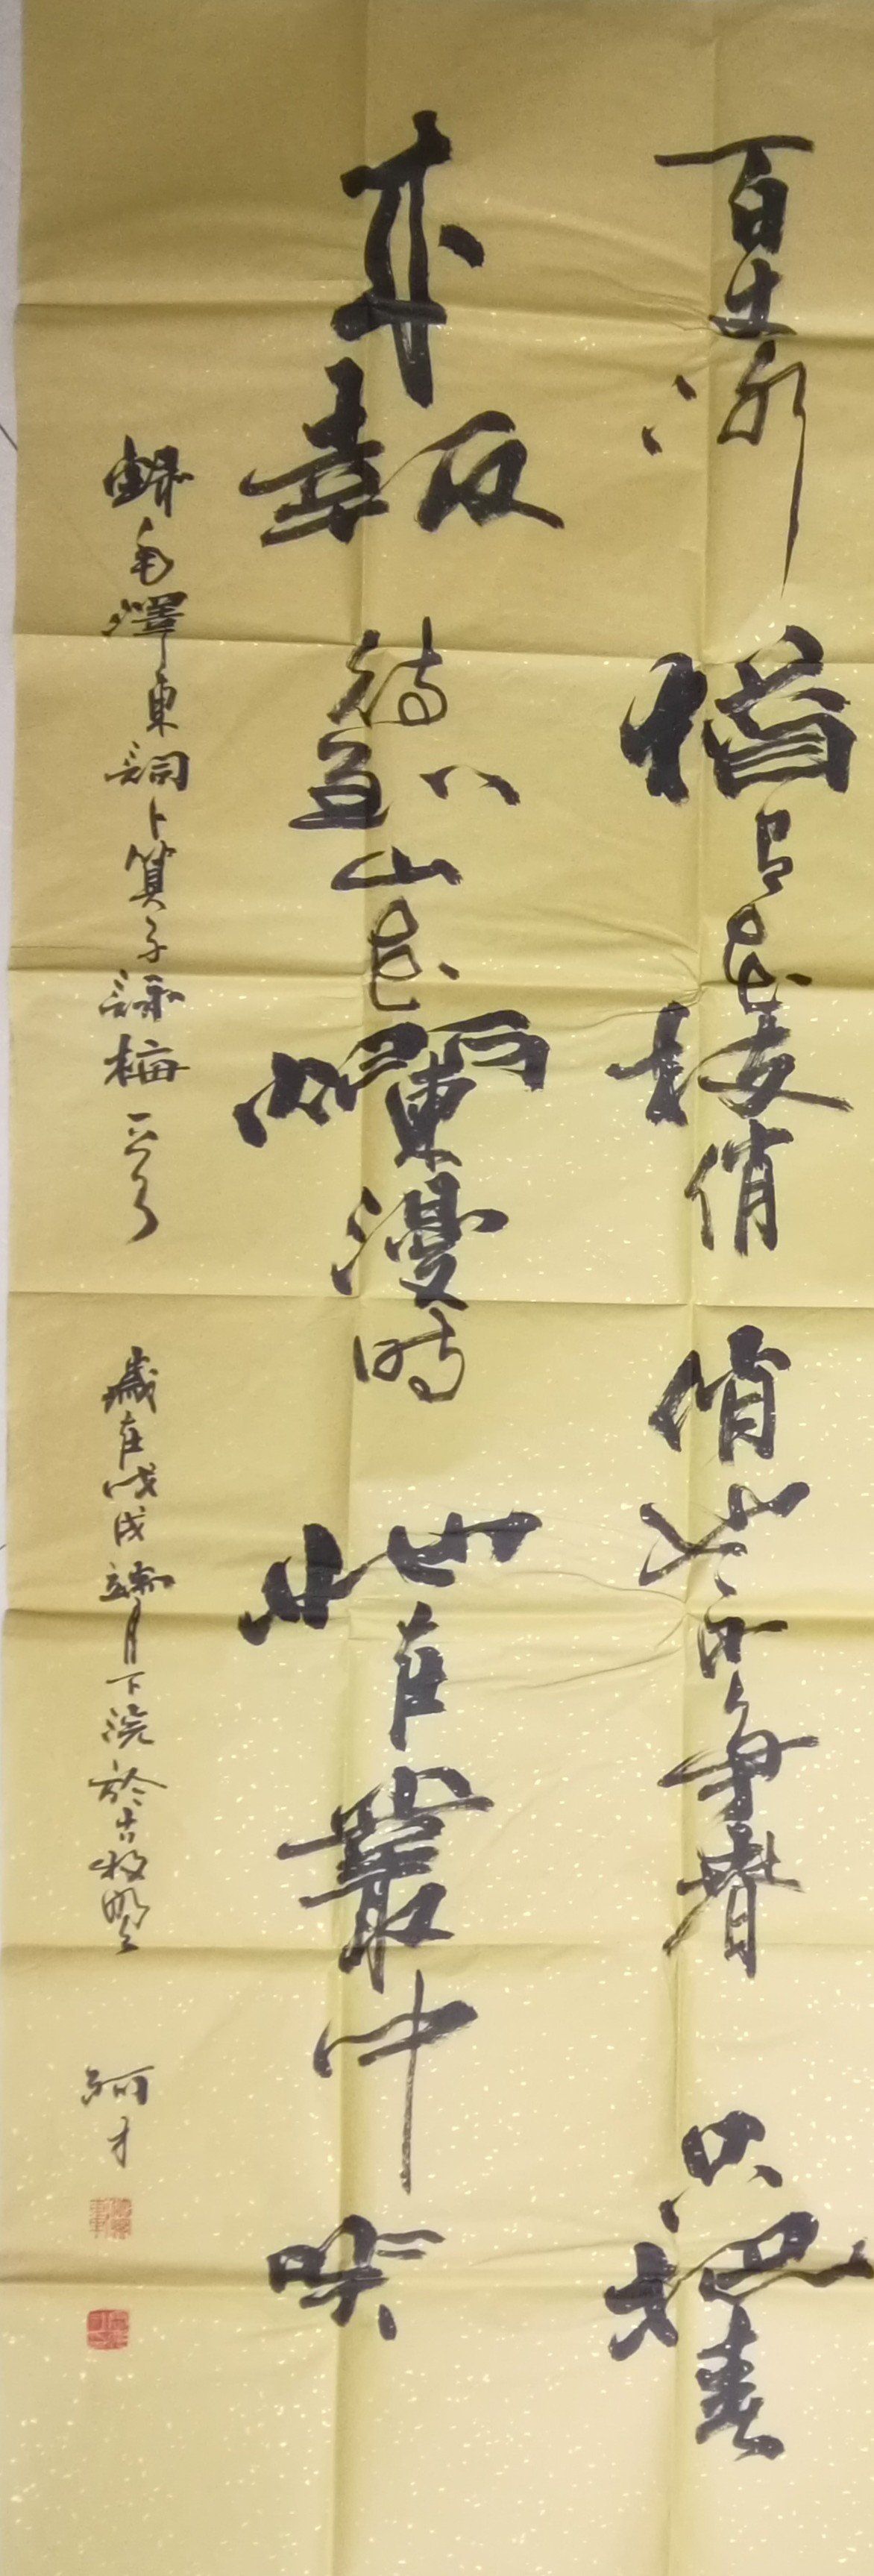 百丈冰猶有花枝俏俏也不爭春只把春
來報待到山花爛漫時她在叢中笑
錄毛澤東詞卜算子詠梅
歲在戊戌端月下浣於古